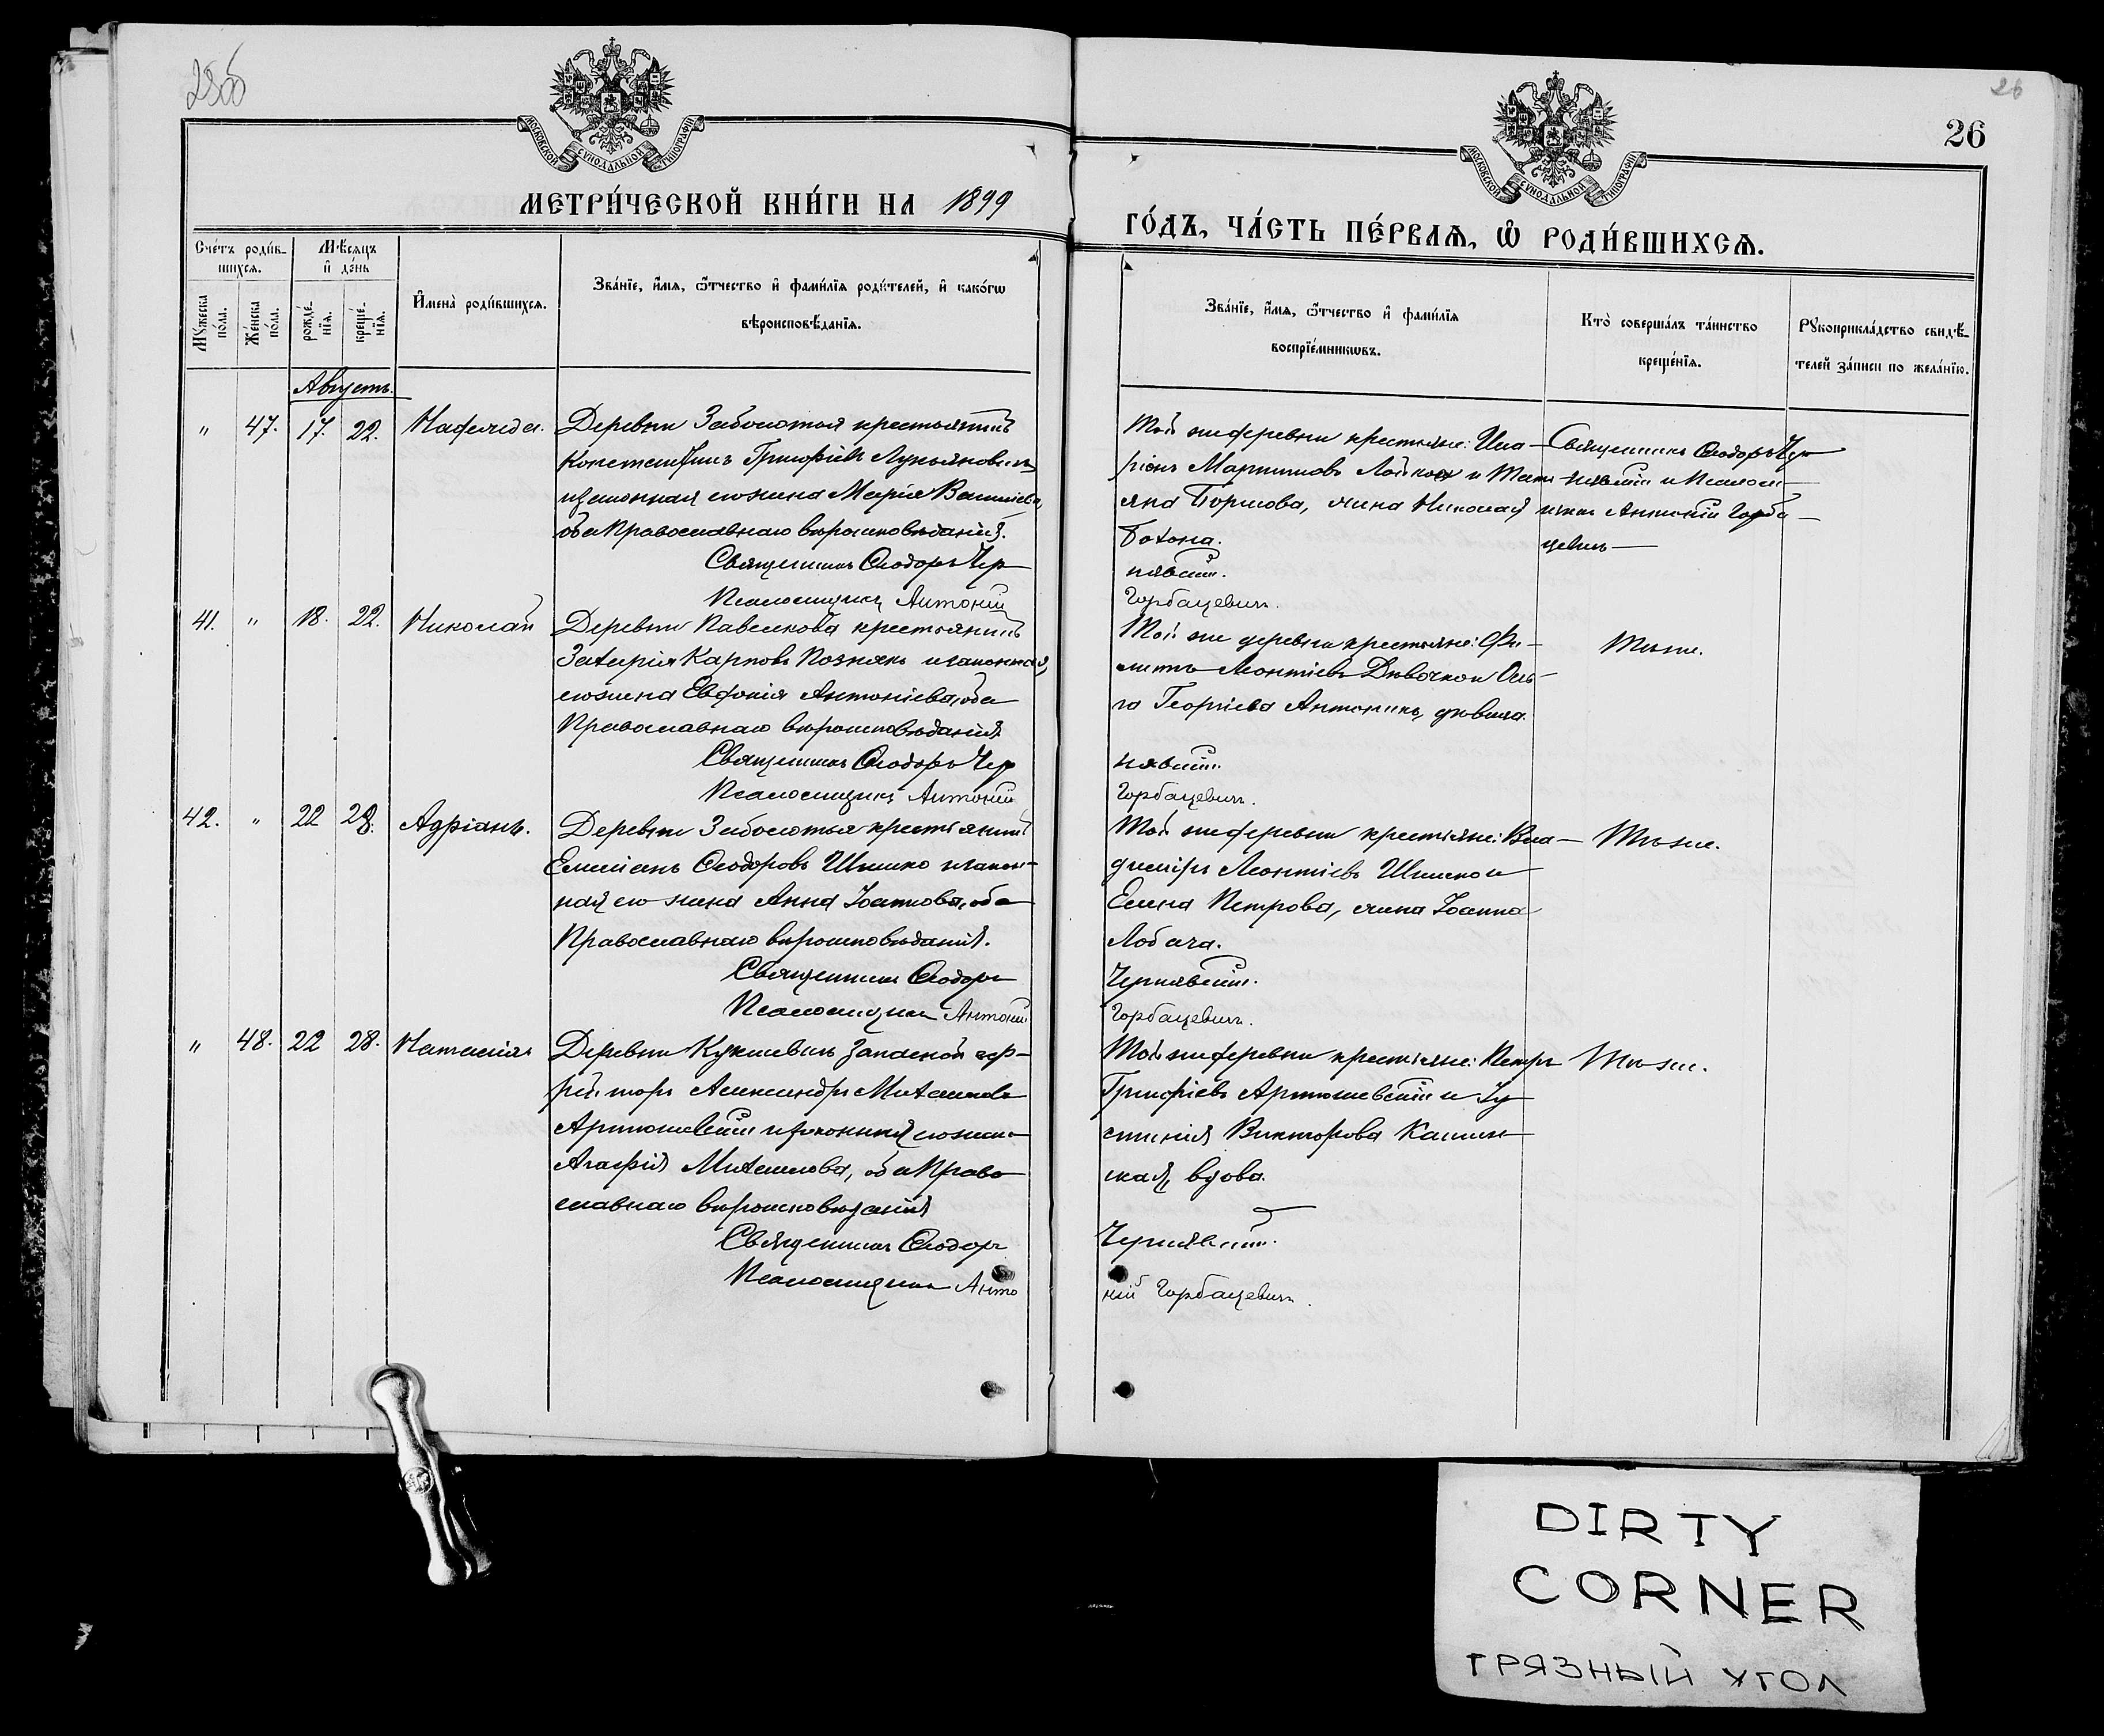 25об
26
26
МОСКОВСКОЙ СѴНОДАЛЬНОЙ ТИПОГРАФІИ
МОСКОВСКОЙ СѴНОДАЛЬНОЙ ТИПОГРАФІИ
МЕТРИ́ЧЕСКОЙ КНИ́ГИ НА 1899
ГО́ДЪ, ЧА́СТЬ ПЕ́РВАѦ, Ѡ҆ РОДИ́ВШИХСѦ.
Сче́тъ роди́в-
шихсѧ.
Мѣ́сѧцъ
и҆ де́нь
Мꙋ́жеска по́ла.
Же́нска по́ла.
рожде́-
нїѧ.
креще́-
нїѧ.
И҆мена̀ роди́вшихсѧ.
Зва́нїе, и҆́мѧ, ѻ҆́тчество и҆ фами́лїѧ роди́телей, и҆ како́гѡ
вѣроисповѣ́данїѧ.
Зва́нїе, и҆́мѧ, ѻ҆́тчество и҆ фами́лїѧ
воспрїе́мникѡвъ.
Кто̀ соверша́лъ та́инство
креще́нїѧ.
Рꙋкоприкла́дство свидѣ́-
телей за́писи по жела́нїю.
Августъ.
" 47. 17. 22. Надежда.
Деревни Заболотья крестьянинъ
Константинъ Григорьевъ
и законная его жена Марія
оба Православнаго вѣроисповѣданія.
Священникъ Ѳеодоръ Чер
Псаломщикъ Антоній
Той же деревни крестьяне: Ила-
ріонъ Мартиновъ и Тати
яна Борисова, жена Николая
Бохона.
нявскій.
Горбацевичъ.
Священникъ Ѳеодоръ Чер
нявскій и Псалом-
щикъ Антоній Горба-
цевичъ
41. " 18. 22. Николай
Деревни крестьянинъ
Захарія Карповъ Познякъ и законная
его жена Евдокія Антоніева, оба
Православнаго вѣроисповѣданія.
Священникъ Ѳеодоръ Чер
Псаломщикъ Антоній
Той же деревни крестьяне: Фи-
липпъ Леонтіевъ и Оль-
га Георгіева дѣвица.
нявскій.
Горбацевичъ.
Тѣже.
42. " 22 28. Адріанъ.
Деревни Заболотья крестьянинъ
Емиліанъ Ѳеодоровъ Шишко и закон-
ная его жена Анна Іоаннова, оба
Православнаго вѣроисповѣданія.
Священникъ Ѳеодоръ
Псаломщикъ Антоній
Той же деревни крестьяне: Вла-
диміръ Леонтіевъ Шишко и
Елена Петрова, жена Іоанна
Лобача.
Чернявскій.
Горбацевичъ.
Тѣже.
" 48. 22 28. Наталія
Деревни запасной еф-
рейторъ Александръ Михаиловъ
Артюшевскій и законная его жена
Агафія Михаилова, оба Право
славнаго вѣроисповѣданія
Священникъ Ѳеодоръ
Псаломщикъ Анто
Той же деревни крестьяне: Петръ
Григоріевъ Артюшевскій и Іу
стинія Викторова
вдова.
Чернявскій.
ній Горбацевичъ.
Тѣже.
DIRTY
CORNER
ГРЯЗНЫЙ УГОЛ